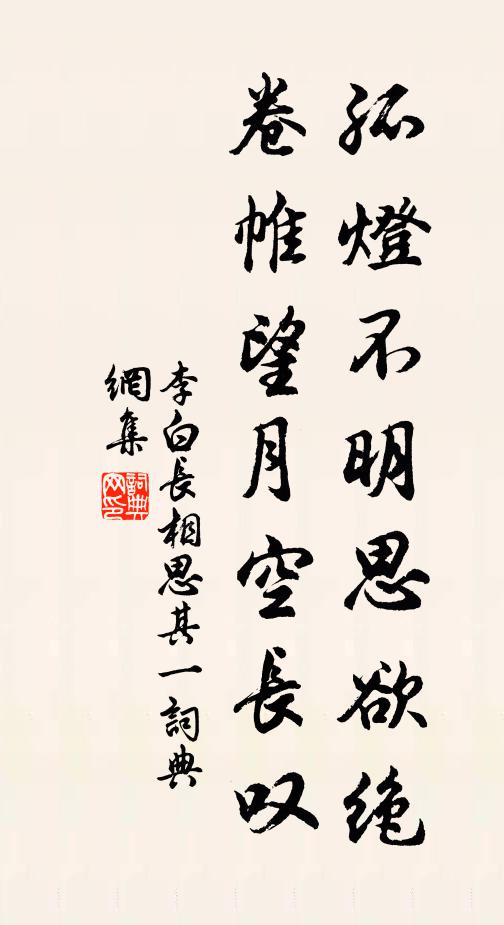 孤燈不明思欲绝
卷帷望月空長叹
李白長相思其一詞典
網集
詞典网印